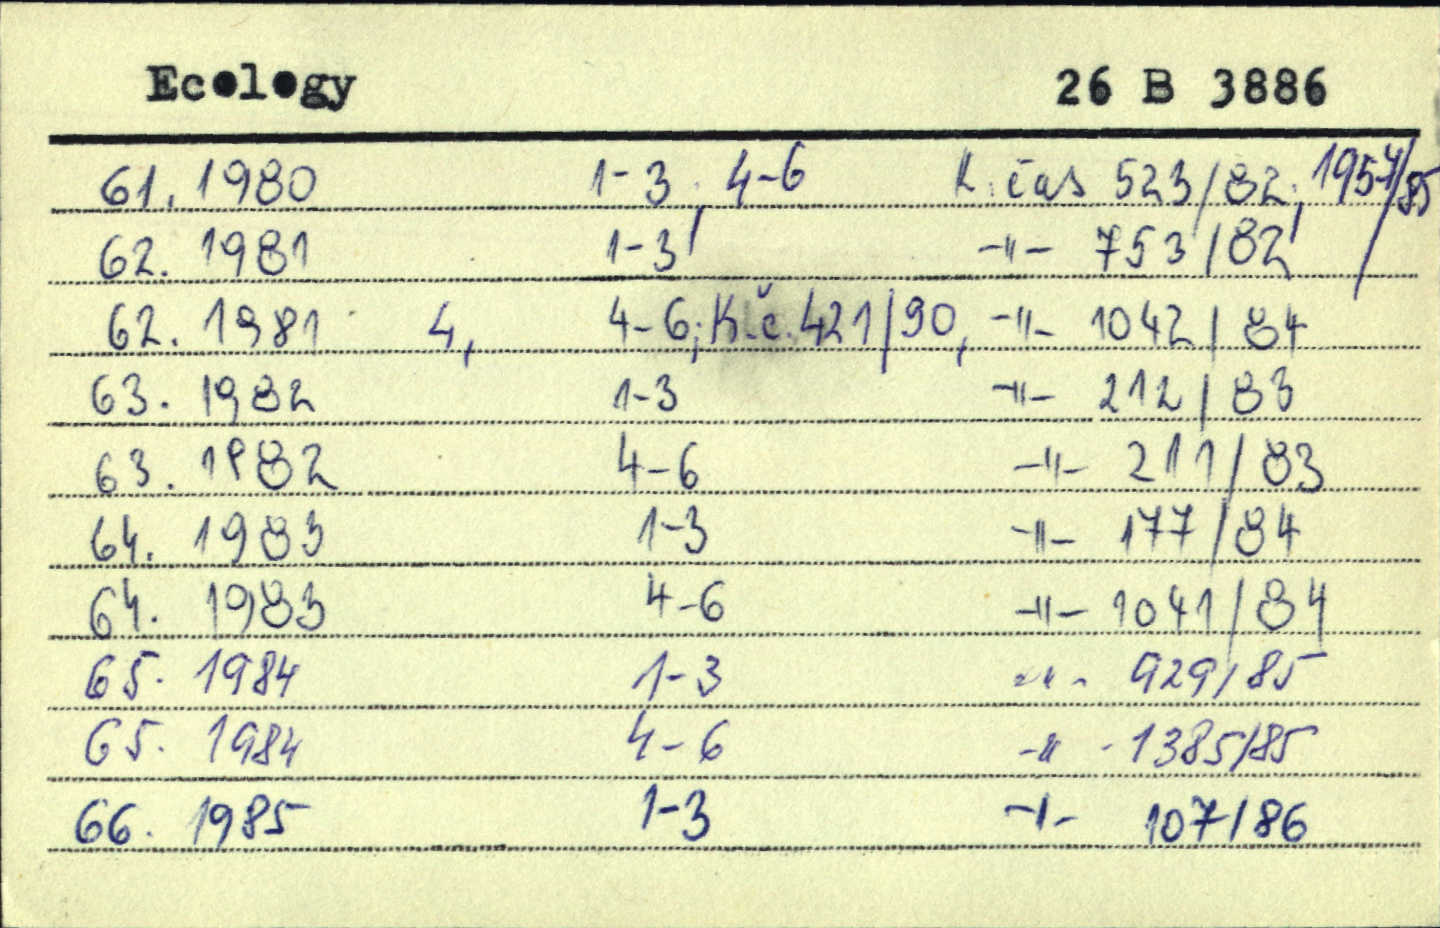 Ecology 26 B 3886
61. 1980 1-3, 4-6 K. čas 523/82, 1957/85
62. 1981 1-3 -"- 753/82
62. 1981 4, 4-6; K.č. 421/90, -"- 1042/84
63. 1982 1-3 -"- 212/83
63. 1982 4-6 -"- 211/83
64. 1983 1-3 -"- 177/84
64. 1983 4-6 -"- 1041/84
65. 1984 1-3 -"- 929/85
65. 1984 4-6 -"- 1385/85
66. 1985 1-3 -"- 107/86